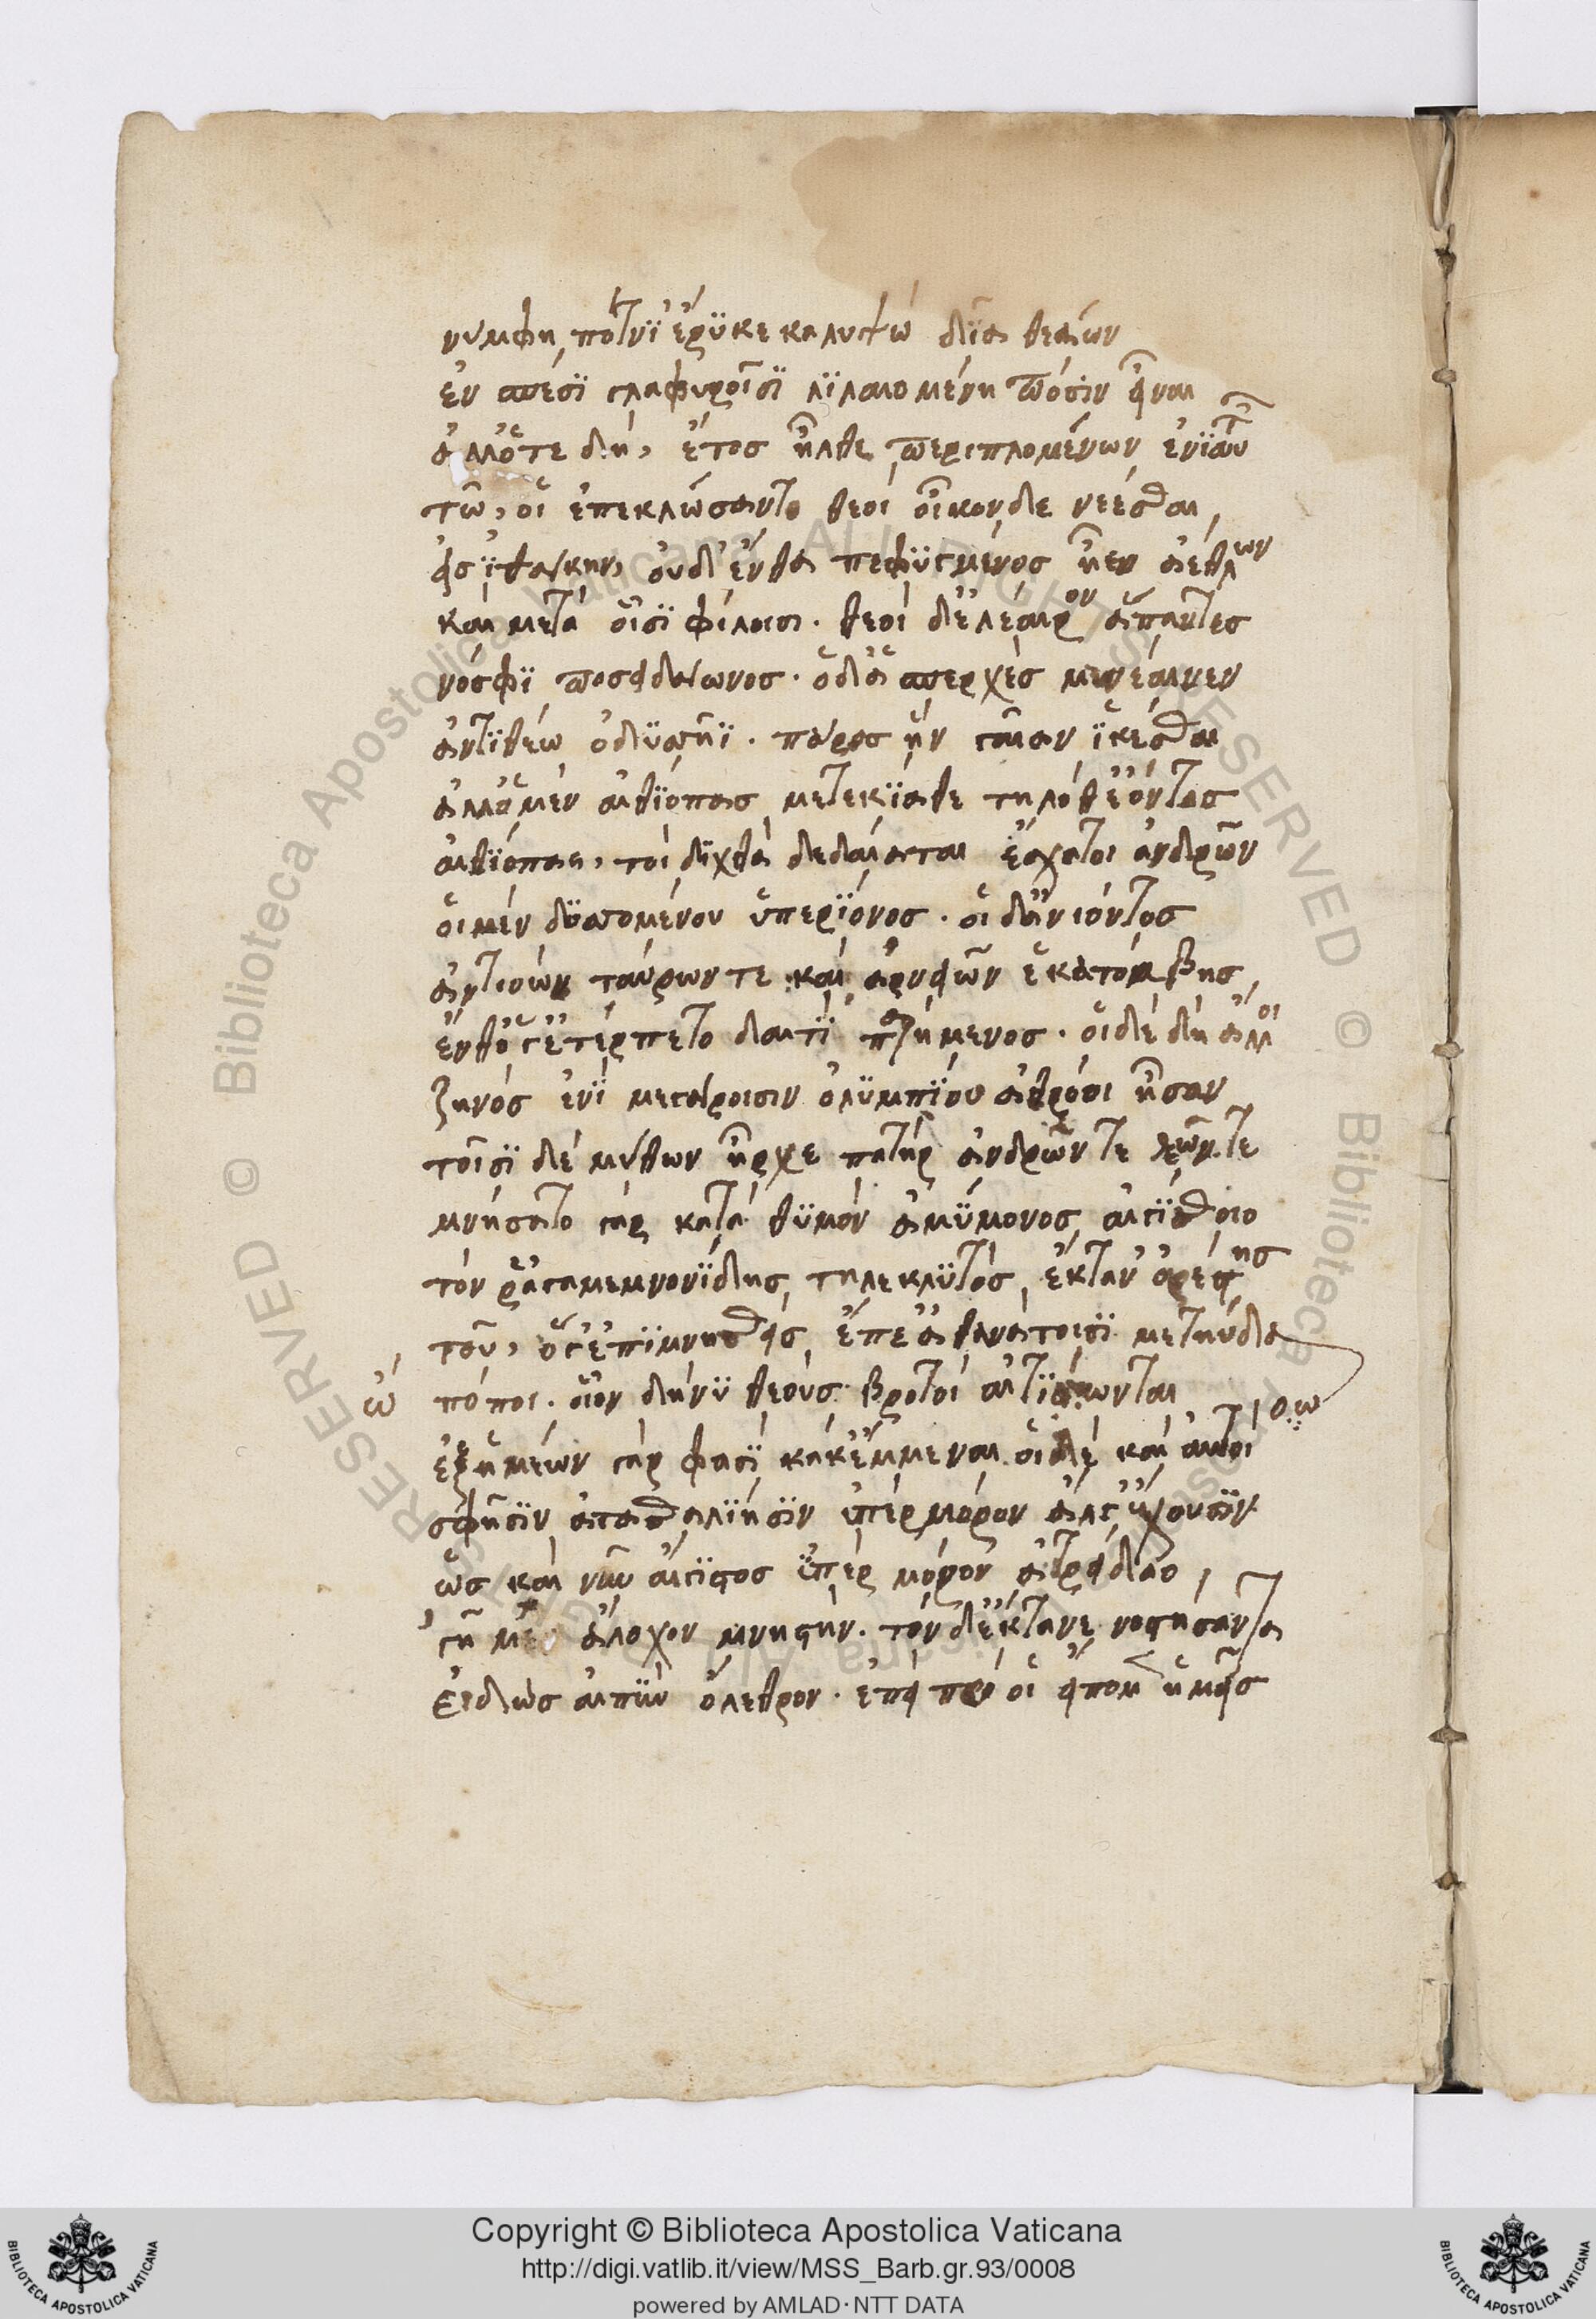 νύμφη πότνϊ' ἐρϋκε καλυψὼ δῖα θεάων
ἐν σπέσϊ γλαφυροῖσϊ λϊλαιομένη πόσϊν εἶναι
ἀλλ' ὅτε δὴ, ἔτος ἦλθε περιπλομένων ἐνϊαυτῶν
τῶ, οἱ ἐπεκλώσαντο θεοὶ οἶκον δε νέεσθαι,
εἰς ἰθάκην, οὐδ' ἔνθα πεφϋγμένος ἦεν ἀέθλων
καὶ μετὰ οἷσϊ φίλοισι. θεοὶ δ' ἐλέαιρον ἅπαντες
νόσφϊ ποσειδάωνος. ὁ δ' ἀσπερχὲς μενέαινεν
ἀντϊθέω ὀδϋσσῆϊ. πάρος ἣν γαῖαν ἱκέσθαι
ἀλλ' ὁ μὲν αἰθϊόπας μετεκϊαθε τηλόθ' ἐόντας
αἰθϊόπας, τοὶ δϊχθὰ δεδαίαται ἔσχατοι ἀνδρῶν
οἱ μὲν δϋσομένου ὑπερϊόνος. οἱ δ' ἀνιόντος
ἀντιόων ταύρων τε καὶ ἀρνειῶν ἑκατόμβης,
ἔνθ' ὅγ' ἐτέρπετο δαιτϊ παρήμενος. οἱ δὲ δὴ ἄλλοι
ζηνὸς ἐνϊ μεγάροισιν ὀλϋμπϊου ἀθρόοι ἦσαν
τοῖσϊ δὲ μύθων ἦρχε πατὴρ ἀνδρῶν τε θεῶν τε
μνήσατο γὰρ κατὰ θϋμὸν ἀμϋμονος αἰγϊσθοιο
τόν ῥ' ἀγαμεμνονϊδης τηλεκλϋτὸς ἔκταν' ὀρέστης
τοῦ, ὅγ' ἐπϊμνησθεὶς ἔπε' ἀθανάτοισϊ μετηύδα
ὢ πόποι. οἷον δή νϋ θεοὺς βροτοὶ αἰτϊόωνται
οω
ἐξ ἡμέων γάρ φασϊ κάκ' ἔμμεναι. οἱ δὲ καὶ αὐτοὶ
σφῆσϊν ἀτασθαλϊησϊν ὑπὲρ μόρον ἄλγε' ἔχουσϊν
ὡς καὶ νῦν αἴγϊσθος ὑπὲρ μόρον ἀτρείδαο,
γῆμεν ἄλοχον μνηστήν. τὸν δ' ἔκτανε νοστήσαντα
εἰδὼς αἰπὺν ὄλεθρον. ἐπεὶ πρό οἱ εἴπομεν ἡμεῖς
Copyright © Biblioteca Apostolica Vaticana
http://digi.vatlib.it/view/MSS_Barb.gr.93/0008
powered by AMLAD·NTT DATA